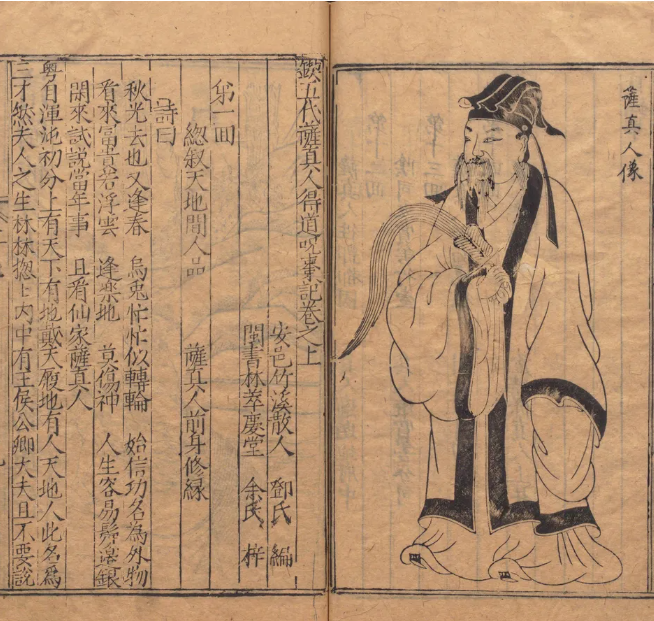 薩真人像
鍥五代薩真人得道呪棗記卷之上
安邑竹溪散人 鄧氏 編
閩書林萃慶堂 余氏 梓
第一回
總叙天地間人品 薩真人前身修緣
詩曰
秋光去也又逢春 烏兔忙忙似轉輪 始信功名為外物
看來富貴若浮雲 逢樂地 莫傷神 人生容易鬢邊銀
閑來試説當年事 且看仙家薩真人
粤自渾沌初分上有天下有地戴天履地有人天地人此名為
三才然夫人之生林林揔〻內中有王侯公卿大夫且不要説